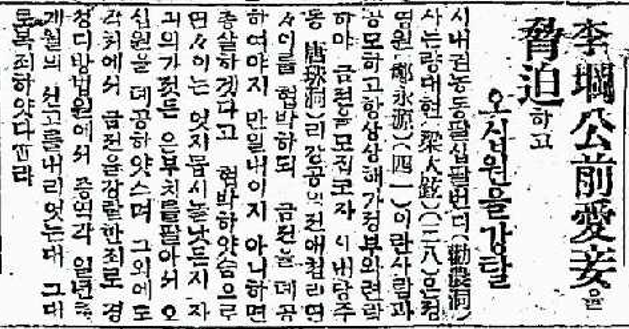 李堈公前愛妾을
脅迫하고
오십원을강탈
시내권농동팔십팔번디(勸農洞)
사는량대현(梁大鉉)(三八)은정
영원(鄭永源)(四一)이란사람과
공모하고항상상해가정부와련락
하야 금전을모집코자 시내당주
동(唐珠洞)리강공의전애첩리면
々이를 협박하되 금전을뎨공
하여야지 만일내이지 아니하면
총살하겟다고 협박하얏슴으로
면々이는 엇지몹시놀낫든지 자
긔의가젓든 은부치를팔아서 오
십원을뎨공하얏스며 그외에도
각처에서 금전을강탈한죄로 경
성디방법원에서 증역각 일년륙
개월의 션고를내리엇는대 그대
로복죄하얏다더라